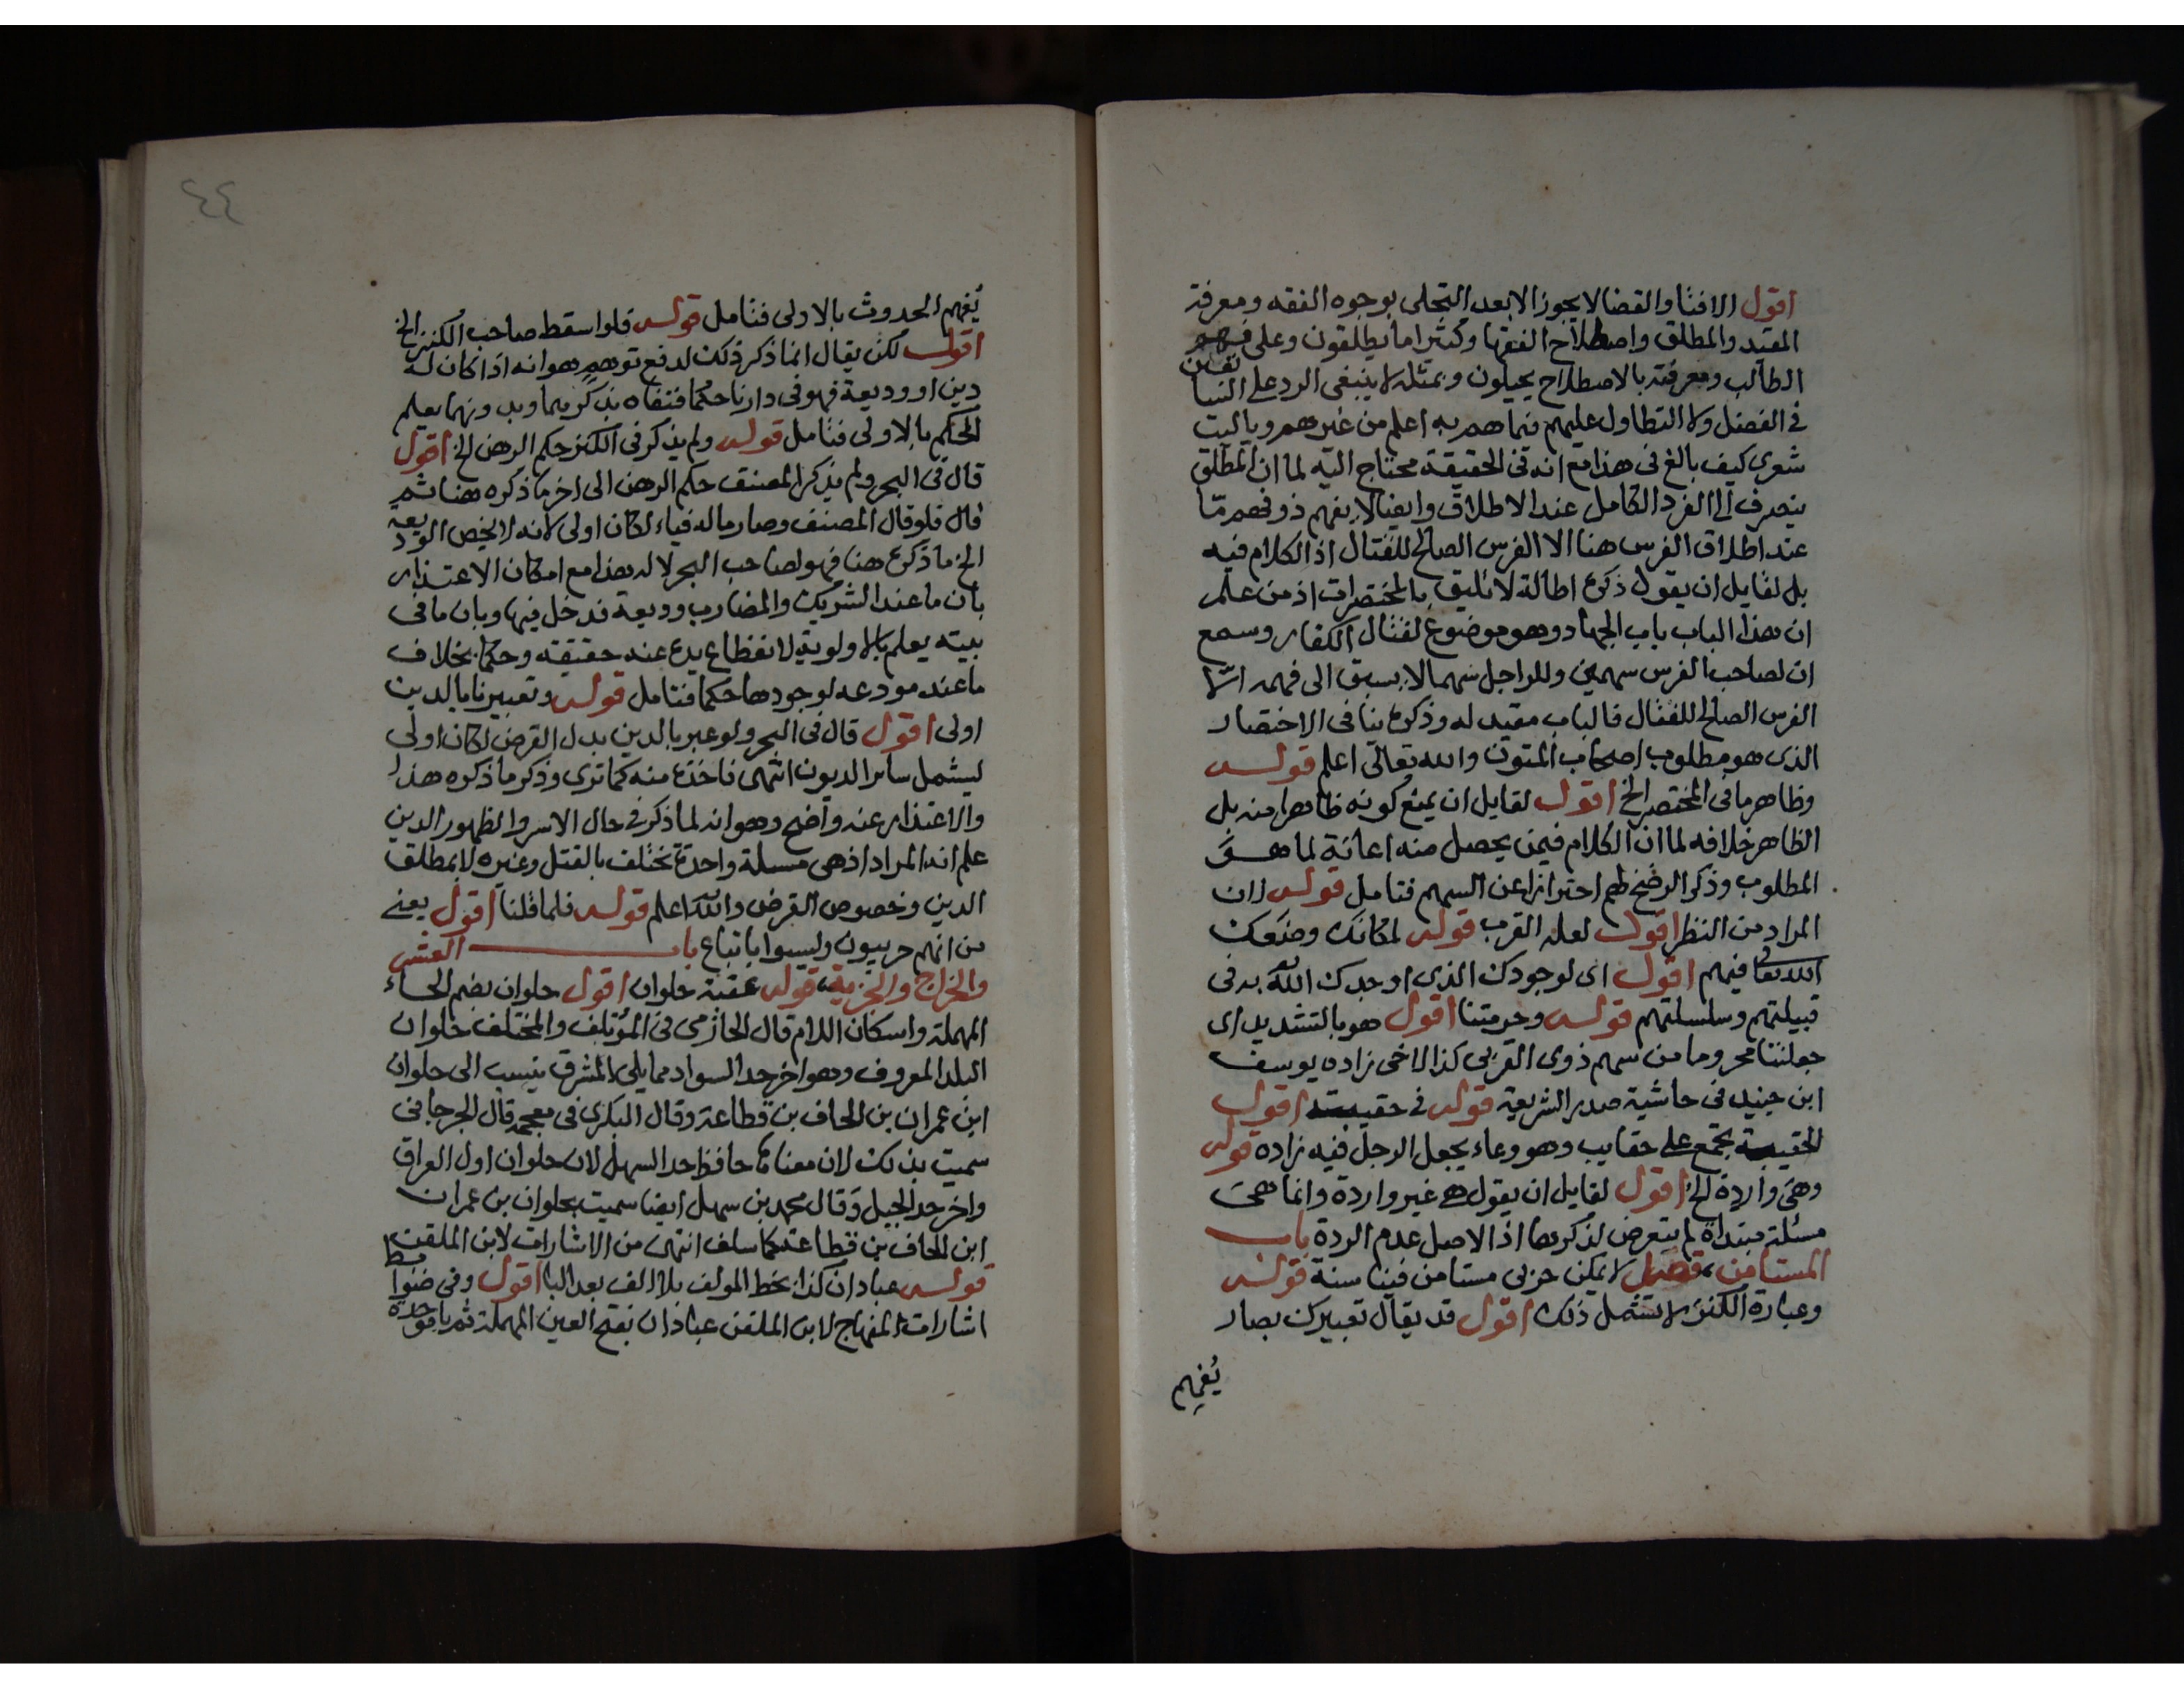 اقول الافتا والقضا لا يجوز الا بعد التحلي بوجوه الفقه ومعرفة
المقيد والمطلق واصطلاح الفقها وكثيرا ما يطلقون وعلى فهم
الطالب ومعرفته بالاصطلاح يحيلون وبمثله لا ينبغي الرد على السابقين
في الفضل ولا التطاول عليهم فيما هم به اعلم من غيرهم وياليت
شعري كيف بالغ في هذا مع انه في الحقيقة محتاج اليه لما ان المطلق
ينصرف الى الفرد الكامل عند الاطلاق وايضا لا يفهم ذو فهم ما
عند اطلاق الفرس هنا الا الفرس الصالح للقتال اذ الكلام فيه
بل لقايل ان يقول ذكره اطالة لا تليق بالمختصرات اذ من علم
ان هذا الباب باب الجهاد وهو موضوع لقتال الكفار وسمع
ان لصاحب الفرس سهمين وللراجل سهما لا يسبق الى فهمه الا
الفرس الصالح للقتال فالباب مقيد له وذكره ينافي الاختصار
الذي هو مطلوب اصحاب المتون والله تعالى اعلم قوله
وظاهر ما في المختصر الخ اقول لقايل ان يمنع كونه ظاهرا منه بل
الظاهر خلافه لما ان الكلام فيمن يحصل منه اعانة لما هو
المطلوب وذكر الرضخ لهم احترازا عن السهم فتامل قوله ان
المراد من النظر اقول لعله القرب قوله لمكانك وضعك
الله تعالى فيهم اقول اي لوجودك الذي اوجدك الله به في
قبيلتهم وسلسلتهم قوله وحرمتنا اقول هو بالتشديد اي
جعلتنا محروما من سهم ذوي القربى كذا لاخي زاده يوسف
ابن جنيد في حاشية صدر الشريعة قوله في حقيبته اقول
الحقيبة تجمع على حقايب وهو وعاء يجعل الرجل فيه زاده قوله
وهي واردة الخ اقول لقايل ان يقول هي غير واردة وانما هي
مسئلة مبتداة لم يتعرض لذكرها اذ الاصل عدم الردة باب
المستامن فصل لا يمكن حربي مستامن فينا سنة قوله
وعبارة الكنز لا تشمل ذلك اقول قد يقال تعبيرك بصار
يُفهم
٤٤
يُفهم الحدوث بالاولى فتامل قوله فلو اسقط صاحب الكنز الخ
اقول لكن يقال انما ذكر ذلك لدفع توهم هو انه اذا كان له
دين او وديعة فهو في دارنا حكما فتفاه بذكريهما وبدونهما يعلم
الحكم بالاولى فتامل قوله ولم يذكر في الكنز حكم الرهن الخ اقول
قال في البحر ولم يذكر المصنف حكم الرهن الى اخر ما ذكره هنا ثم
قال فلو قال المصنف وصار ماله فياء لكان اولى لانه لا يخص الوديعة
الخ ما ذكره هنا فهو لصاحب البحر لا له هذا مع امكان الاعتذار
بان ما عند الشريك والمضارب وديعة فدخل فيها وبان ما في
بيته يعلم بالاولوية لانقطاع يده عنه حقيقة وحكما بخلاف
ما عند مودعه لوجودها حكما فتامل قوله وتعبيرنا بالدين
اولى اقول قال في البحر ولو عبر بالدين بدل القرض لكان اولى
ليشمل ساير الديون انتهى فاخذه منه كما ترى وذكر ما ذكره هذا
والاعتذار عنه واضح وهو انه لما ذكر في حال الاسر والظهور الدين
علم انه المراد اذ هي مسئلة واحدة تختلف بالقتل وغيره لا بمطلق
الدين وخصوص القرض والله اعلم قوله فلما قلنا اقول يعني
من انهم حربيون وليسوا باتباع باب العشر
والخراج والجزية قوله عقبة حلوان اقول حلوان بضم الحاء
المهملة واسكان اللام قال الحازمي في المؤتلف والمختلف حلوان
البلد المعروف وهو اخر حد السواد مما يلي المشرق ينسب الى حلوان
ابن عمران بن الحاف بن قطاعة وقال البكري في معجمه قال الجرجاني
سميت بذلك لان معناه حافظ حد السهل لان حلوان اول العراق
واخر حد الجبل وقال محمد بن سهل ايضا سميت بحلوان بن عمران
ابن الحاف بن قطاعة كما سلف انتهى من الاشارات لابن الملقن
قوله عبادان كذا بخط المولف بلا الف بعد البا اقول وفي ضبط
اشارات المنهاج لابن الملقن عبادان بفتح العين المهملة ثم با موحدة